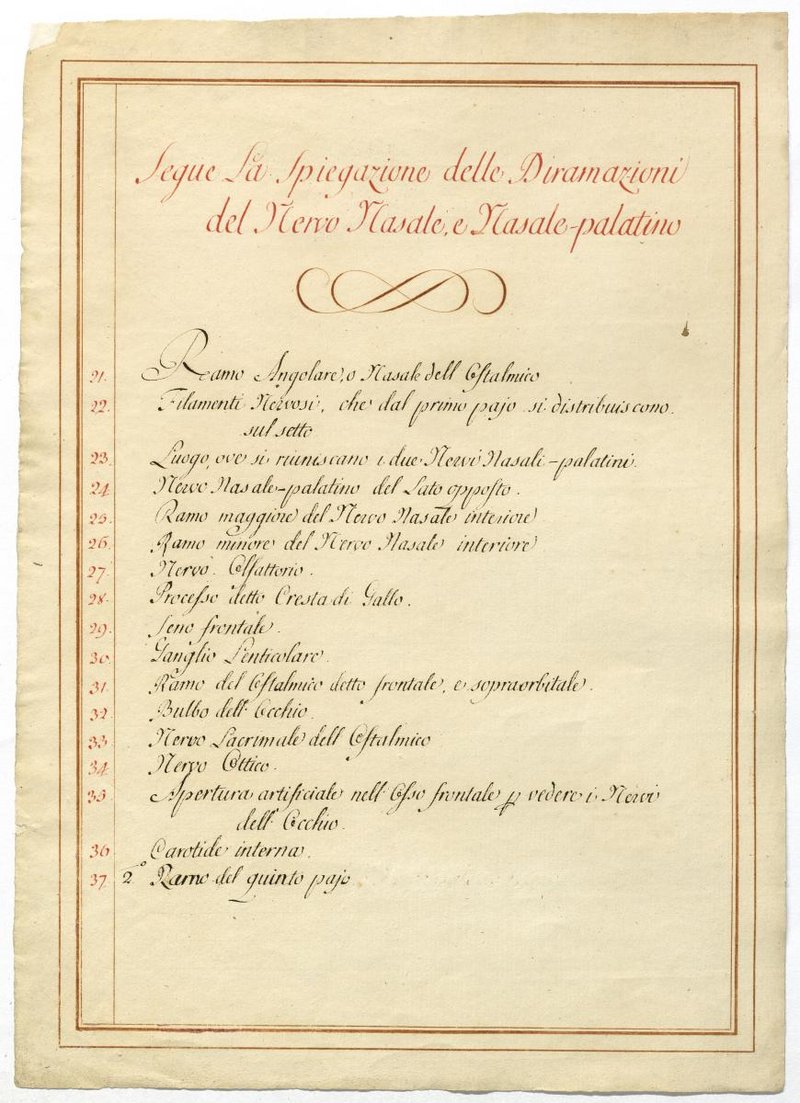 Segue La Spiegazione delle Diramazioni
del Nervo Nasale, e Nasale-palatino
21. Ramo Angolare, o Nasale dell Oftalmico
22. Filamenti Nervosi, che dal primo pajo si distribuiscono
sul setto
23. Luogo, ove si riuniscano i due Nervi Nasali-palatini.
24. Nervo Nasale-palatino del Lato opposto.
25. Ramo maggiore del Nervo Nasale interiore
26. Ramo minore del Nervo Nasale interiore
27. Nervo Olfattorio.
28. Processo detto Cresta di Gallo.
29. Seno frontale.
30. Ganglio Lenticolare.
31. Ramo del Oftalmico detto frontale, e sopraorbitale.
32. Bulbo dell' Occhio.
33 Nervo Lacrimale dell Oftalmico
34. Nervo Ottico.
35 Apertura artificiale nell' Osso frontale p vedere i Nervi
dell' Occhio.
36 Carotide interna.
37. 2.º Ramo del quinto pajo